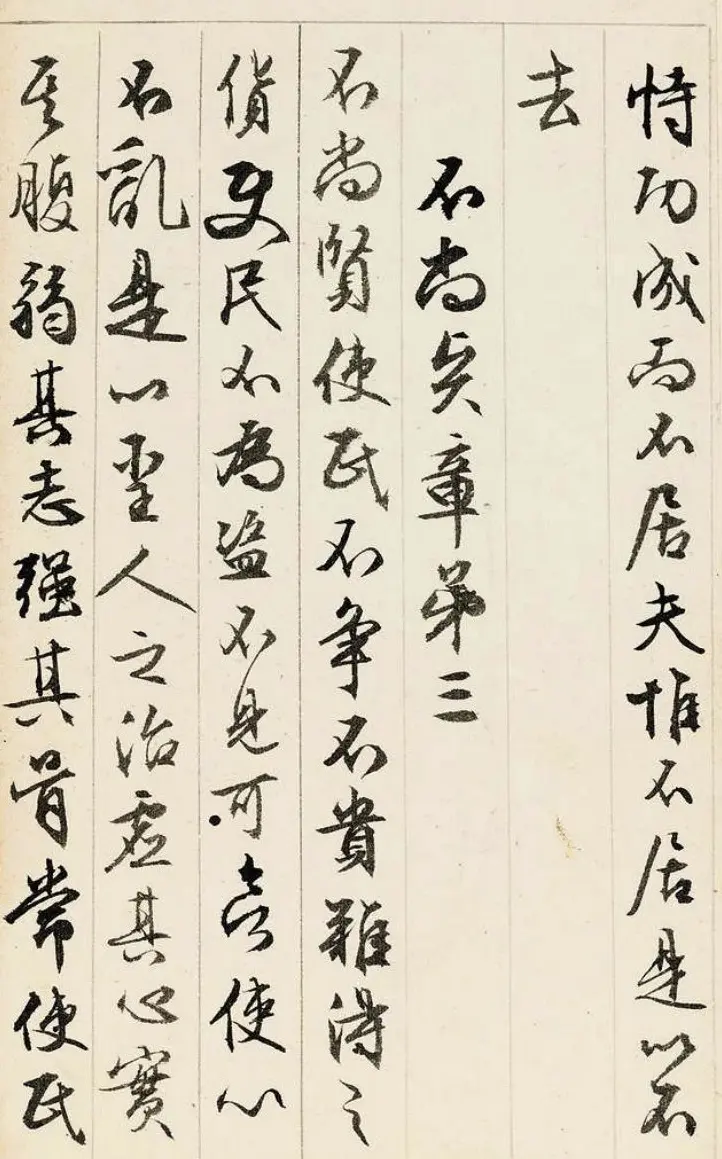 恃功成而不居夫惟不居是以不
去
不尚賢章第三
不尚賢使民不争不貴難得之
貨使民不為盗不見可欲使心
不亂是以聖人之治虚其心實
其腹弱其志强其骨常使民